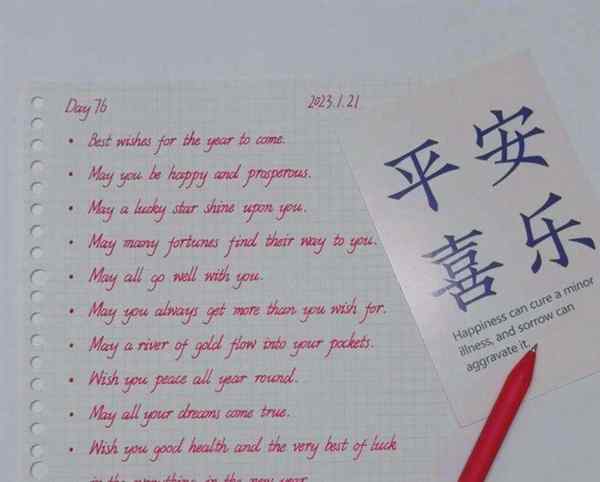 Day 76
2023.1.21
• Best wishes for the year to come.
• May you be happy and prosperous.
• May a lucky star shine upon you.
• May many fortunes find their way to you.
• May all go well with you.
• May you always get more than you wish for.
• May a river of gold flow into your pockets.
• Wish you peace all year round.
• May all your dreams come true.
• Wish you good health and the very best of luck
in the everything in the new year
平安
喜乐
Happiness can cure a minor
illness, and sorrow can
aggravate it.